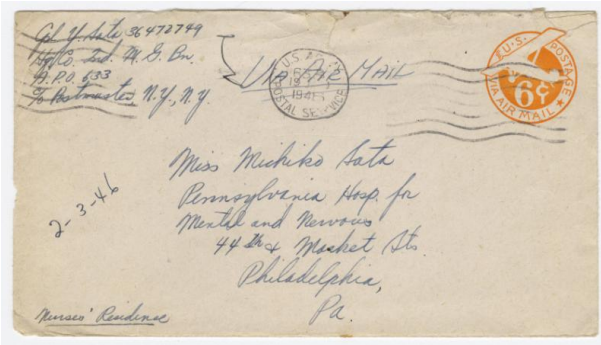 Cpl Y. Sata 36472749
Hq. Co. 2nd. M. G. Bn.
A.P.O. 633
c/o Postmaster N.Y., N.Y.
Via Air Mail
U.S. ARMY
1946
POSTAL SERVICE
U.S. POSTAGE
6¢
VIA AIR MAIL
Miss Michiko Sata
Pennsylvania Hosp. for
Mental and Nervous
44th & Market Sts.
Philadelphia,
Pa.
2-3-46
Nurses' Residence